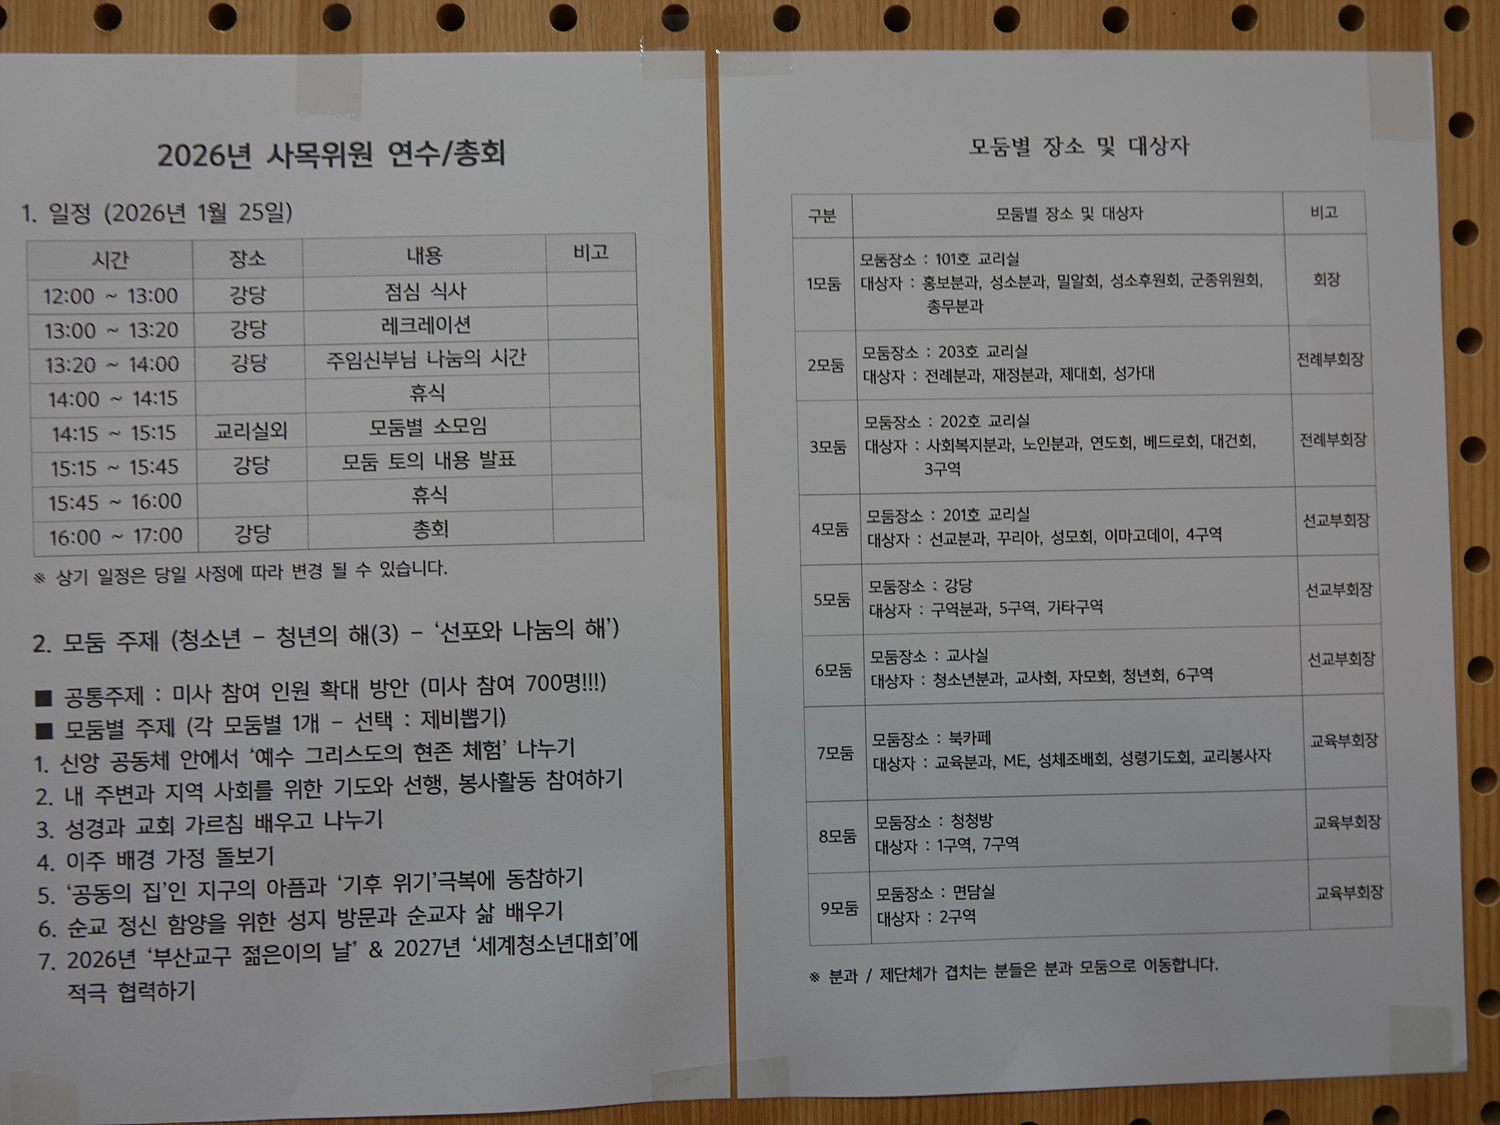 2026년 사목위원 연수/총회
1. 일정 (2026년 1월 25일)
시간 장소 내용 비고
12:00 ~ 13:00 강당 점심 식사
13:00 ~ 13:20 강당 레크레이션
13:20 ~ 14:00 강당 주임신부님 나눔의 시간
14:00 ~ 14:15 휴식
14:15 ~ 15:15 교리실외 모둠별 소모임
15:15 ~ 15:45 강당 모둠 토의 내용 발표
15:45 ~ 16:00 휴식
16:00 ~ 17:00 강당 총회
※ 상기 일정은 당일 사정에 따라 변경 될 수 있습니다.
2. 모둠 주제 (청소년 - 청년의 해(3) - '선포와 나눔의 해')
■ 공통주제 : 미사 참여 인원 확대 방안 (미사 참여 700명!!!)
■ 모둠별 주제 (각 모둠별 1개 - 선택 : 제비뽑기)
1. 신앙 공동체 안에서 '예수 그리스도의 현존 체험' 나누기
2. 내 주변과 지역 사회를 위한 기도와 선행, 봉사활동 참여하기
3. 성경과 교회 가르침 배우고 나누기
4. 이주 배경 가정 돌보기
5. '공동의 집'인 지구의 아픔과 '기후 위기'극복에 동참하기
6. 순교 정신 함양을 위한 성지 방문과 순교자 삶 배우기
7. 2026년 '부산교구 젊은이의 날' & 2027년 '세계청소년대회'에
적극 협력하기
모둠별 장소 및 대상자
구분 모둠별 장소 및 대상자 비고
모둠장소 : 101호 교리실
1모둠 대상자 : 홍보분과, 성소분과, 밀알회, 성소후원회, 군종위원회, 회장
총무분과
모둠장소 : 203호 교리실
2모둠 대상자 : 전례분과, 재정분과, 제대회, 성가대 전례부회장
모둠장소 : 202호 교리실
3모둠 대상자 : 사회복지분과, 노인분과, 연도회, 베드로회, 대건회, 전례부회장
3구역
모둠장소 : 201호 교리실
4모둠 대상자 : 선교분과, 꾸리아, 성모회, 이마고데이, 4구역 선교부회장
모둠장소 : 강당
5모둠 대상자 : 구역분과, 5구역, 기타구역 선교부회장
모둠장소 : 교사실
6모둠 대상자 : 청소년분과, 교사회, 자모회, 청년회, 6구역 선교부회장
모둠장소 : 북카페
7모둠 대상자 : 교육분과, ME, 성체조배회, 성령기도회, 교리봉사자 교육부회장
모둠장소 : 청청방
8모둠 대상자 : 1구역, 7구역 교육부회장
모둠장소 : 면담실
9모둠 대상자 : 2구역 교육부회장
※ 분과 / 제단체가 겹치는 분들은 분과 모둠으로 이동합니다.